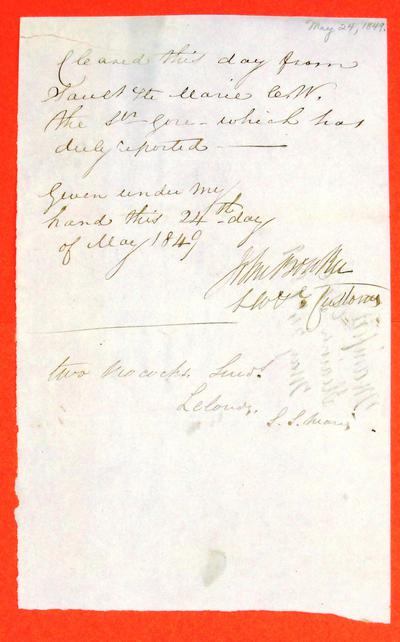 May 24, 1849.
Cleared this day from
Sault Ste Marie C.W.
the Str Gore - which has
duly reported
Given under my
hand this 24th day
of May 1849
John
Customs
two Mococks
S. S. Marie